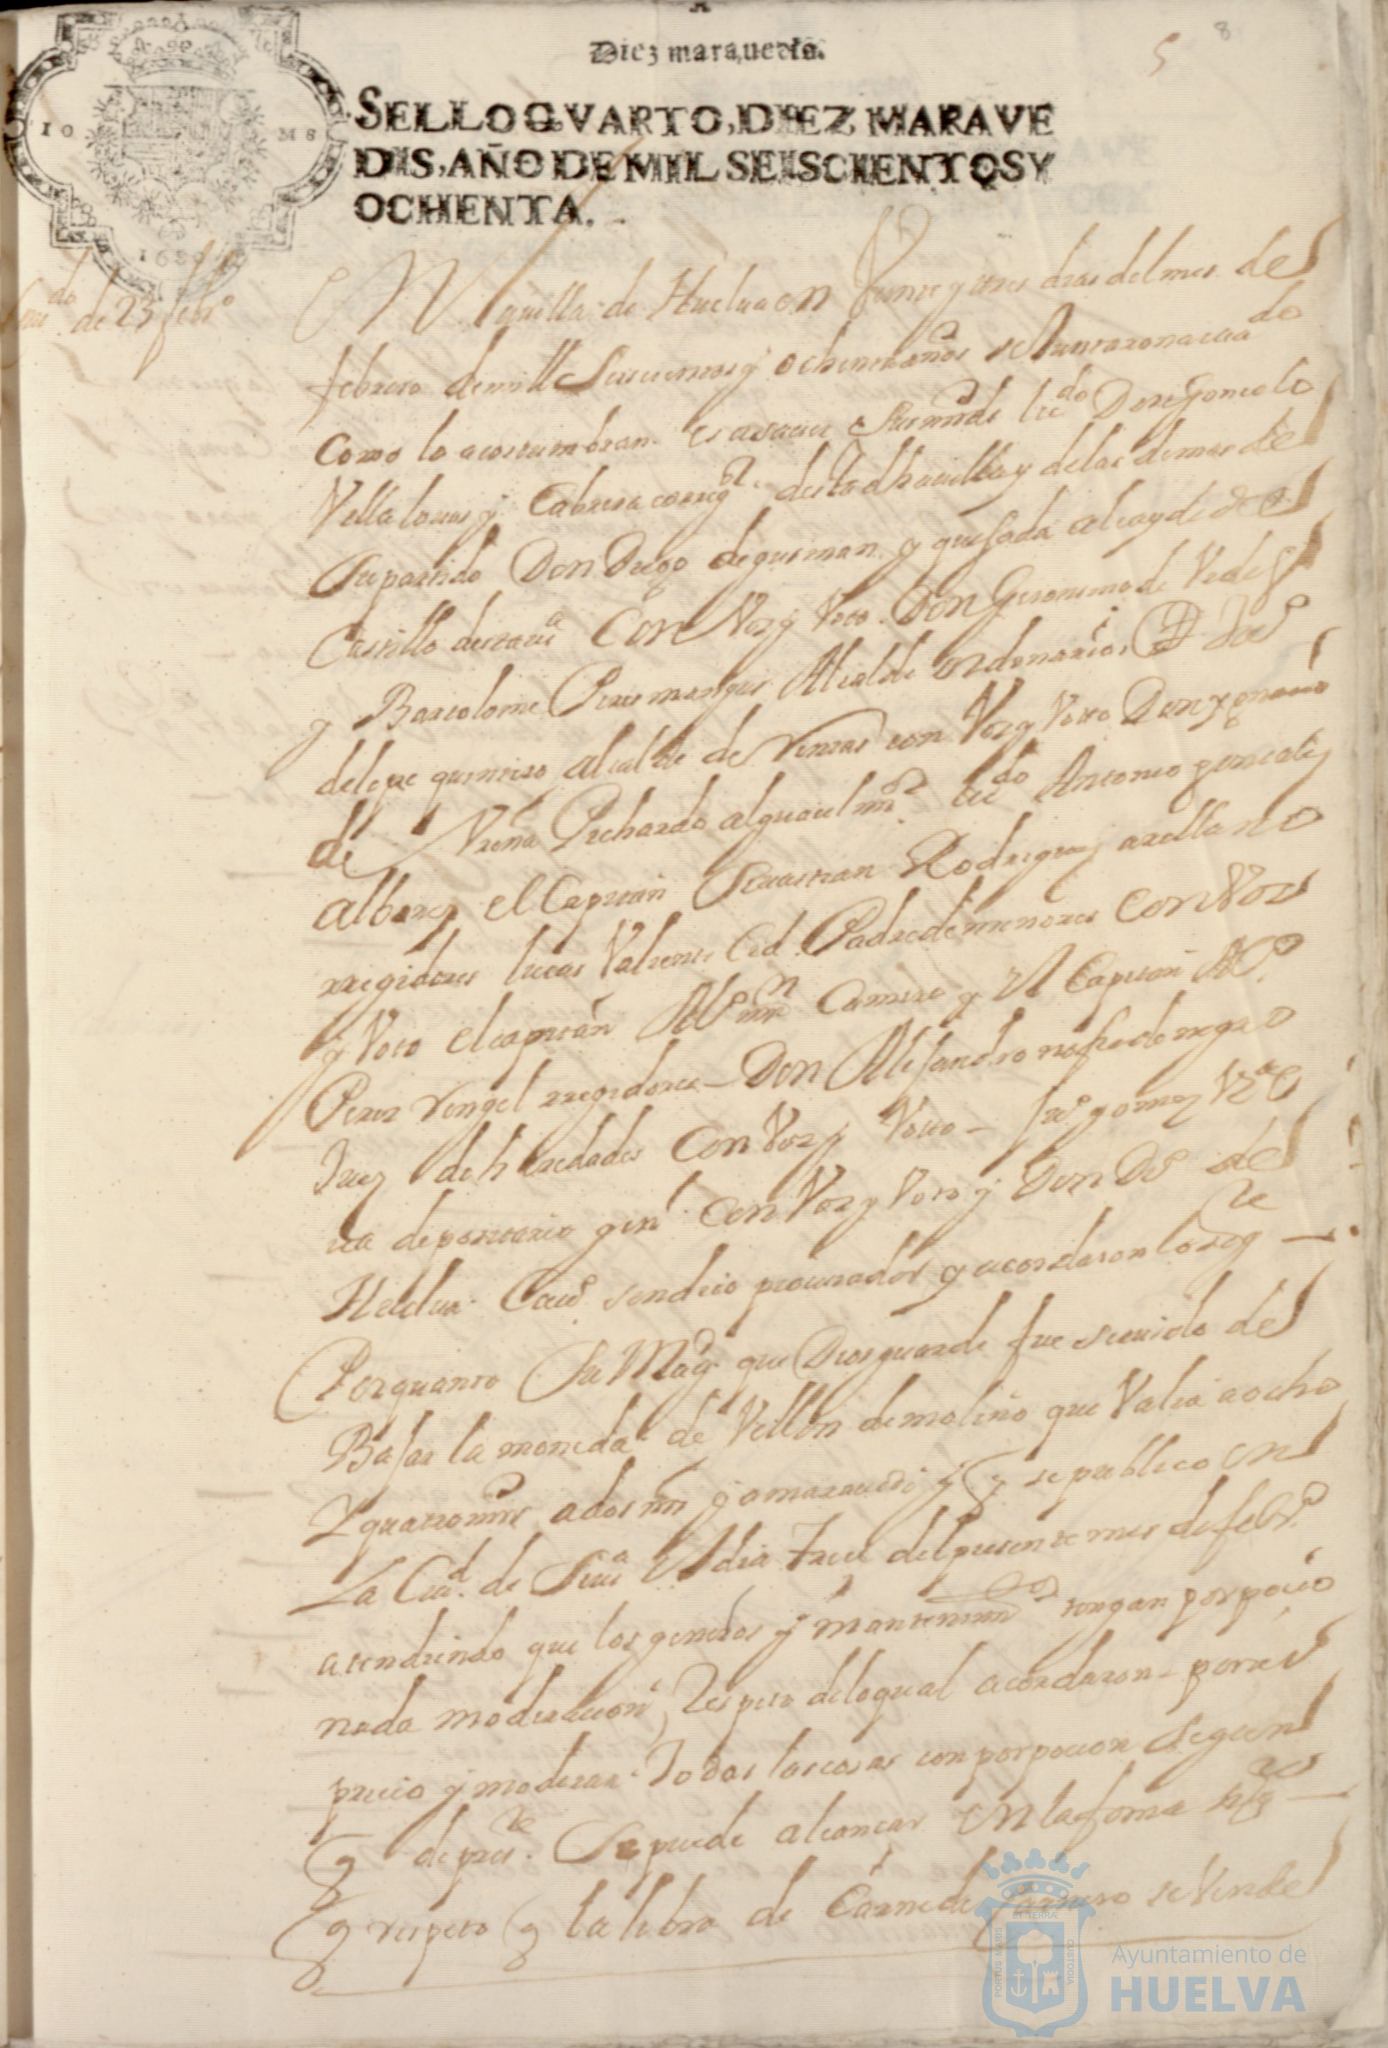 Diez maravedis.
5 8
SELLO QVARTO, DIEZ MARAVE
DIS, AÑO DE MIL SEISCIENTOS Y
OCHENTA.
10 MS
1680
de 23 febrº
En la villa de Huelva en Veinte y tres dias del mes de
febrero de mill seiscientos y ochenta años se Juntaron a cavdo
Como lo acostumbran es a saver su md el licdo Don Gonçalo
Villalovos y Cabrera corregor desta dha villa y de las demas de
su partido Don Diego de gusman y quesada alcayde de el
Castillo desta vª Con Voz y Voto Don Geronimo de
y Bartolome Peres marques Alcaldes ordinarios D
de lepe quintero alcalde de Rentas con Voz y Voto Don ygnacio
de Vreña Pichardo alguacil mor licdo Antonio gonçales
albares el Capitan Sevastian Rodriguez arellano
rregidores lucas Valiente Padre de menores Con Voz
y Voto el capitan Camero y el Capitan Alº
Peres rengel rregidores – Don Alejandro machado negro
Juez de heredades Con Voz y Voto – gomez
depositario genl Con Voz y Voto y Don Dº de
Huelva sendico procurador y acordaron lo sigte
Por quanto Su Magd que Dios guarde fue servido de
Bajar la moneda de Vellon de molino que Valia a ocho
y quatro mrs a dos mrs y a maravedi y q se publico en
La Ciud de Sevª El dia trece del presente mes de febrº
atendiendo que los generos y mantenimtos tengan porporcio
nada moderacion, Respeto de lo qual acordaron – poner
precio y moderar todas las cosas con porporcion segun
q de prete Se puede alcançar En la forma sigte
q respeto q la libra de Carne de Carnero se Vende
PORTUS MARIS ET TERRAE CUSTODIA
Ayuntamiento de
HUELVA